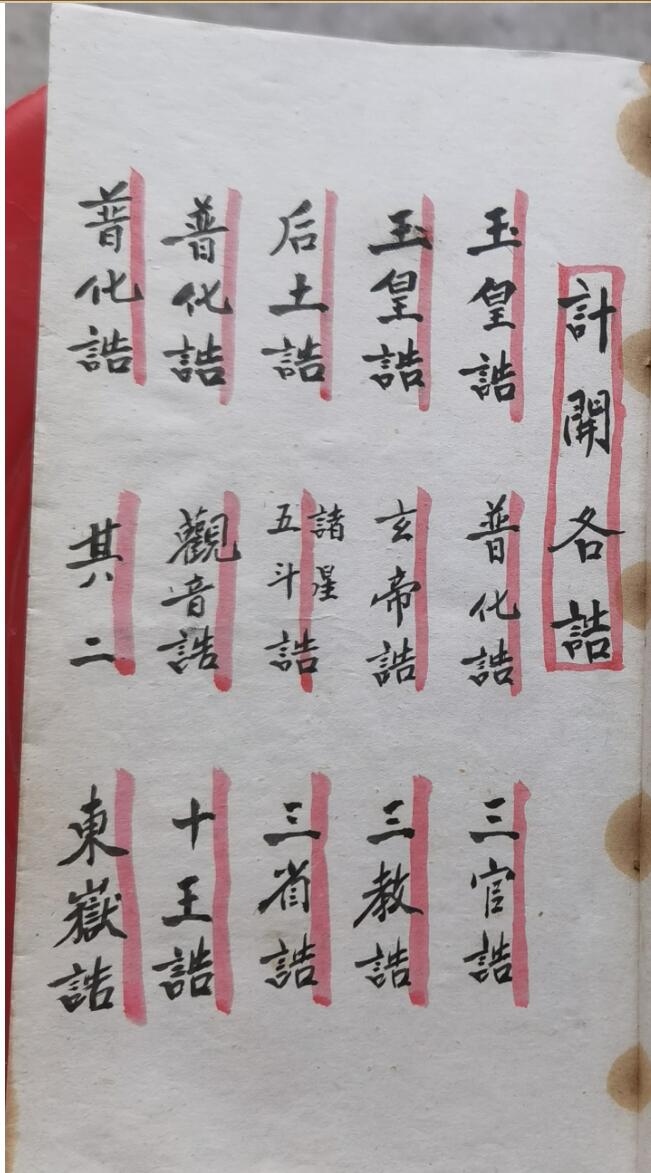 計開各誥
玉皇誥 普化誥 三官誥
玉皇誥 玄帝誥 三教誥
后土誥 諸星五斗誥 三省誥
普化誥 觀音誥 十王誥
普化誥 其二 東嶽誥